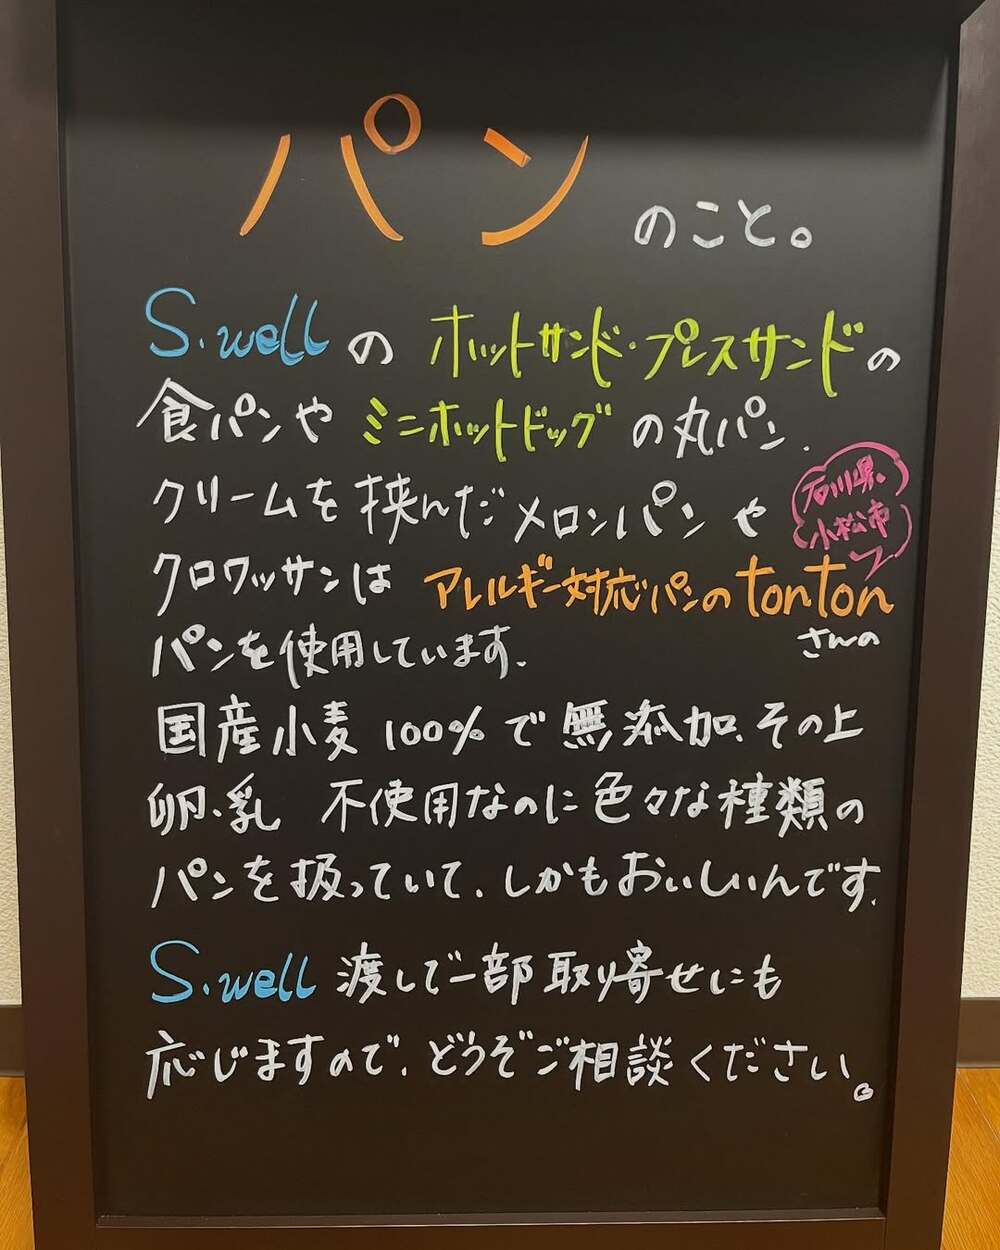 パンのこと。
S.wellの ホットサンド・プレスサンドの
食パンや ミニホットドッグ の丸パン、
クリームを挟んだメロンパン や
石川県、
小松市
クロワッサンは アレルギー対応パンのtonton
さんの
パンを使用しています。
国産小麦 100%で 無添加、その上
卵、乳 不使用なのに色々な種類の
パンを扱っていて、しかもおいしいんです。
S.well 渡しで一部取り寄せにも
応じますので、どうぞご相談ください。